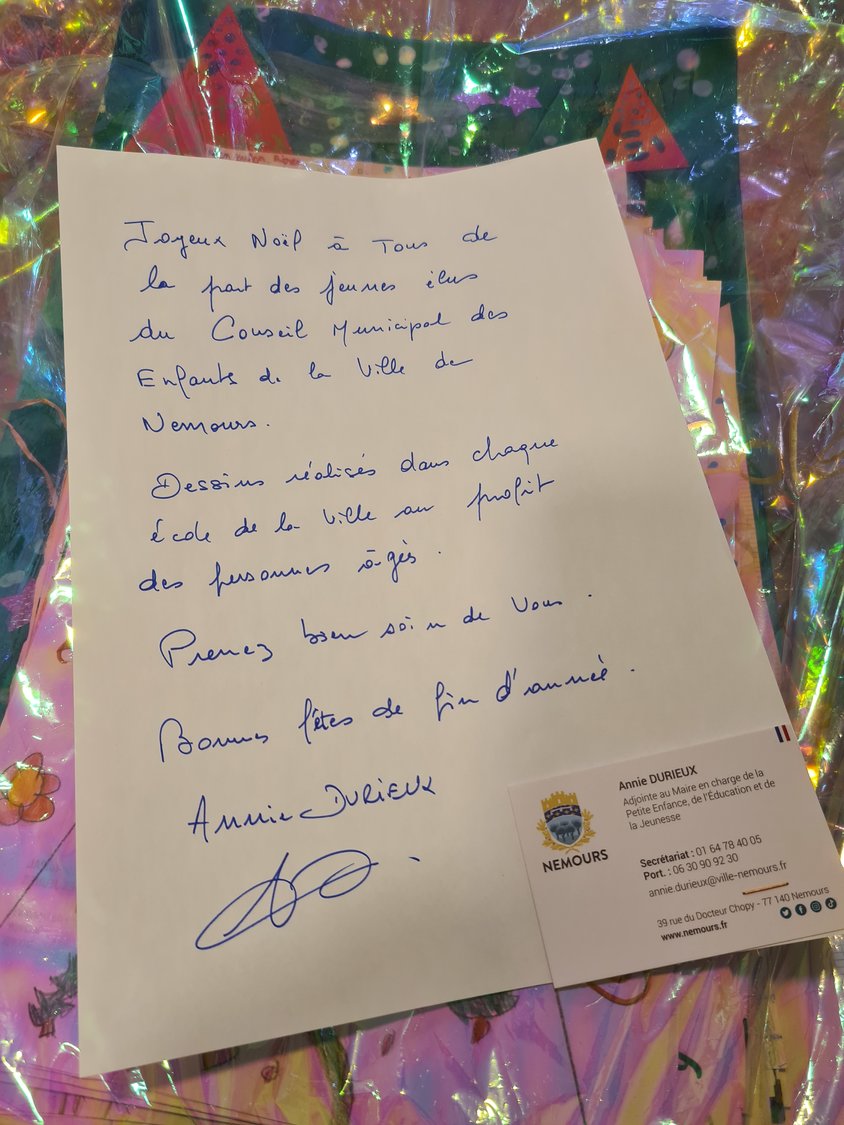 Joyeux Noël à Tous de
la part des jeunes élus
du Conseil Municipal des
Enfants de la Ville de
Nemours.
Dessins réalisés dans chaque
école de la Ville au profit
des personnes âgés.
Prenez bien soin de Vous.
Bonnes fêtes de fin d'année.
Annie DURIEUX
Annie DURIEUX
Adjointe au Maire en charge de la
Petite Enfance, de l'Éducation et de
la Jeunesse
NEMOURS
Secrétariat : 01 64 78 40 05
Port. : 06 30 90 92 30
annie.durieux@ville-nemours.fr
39 rue du Docteur Chopy - 77 140 Nemours
www.nemours.fr